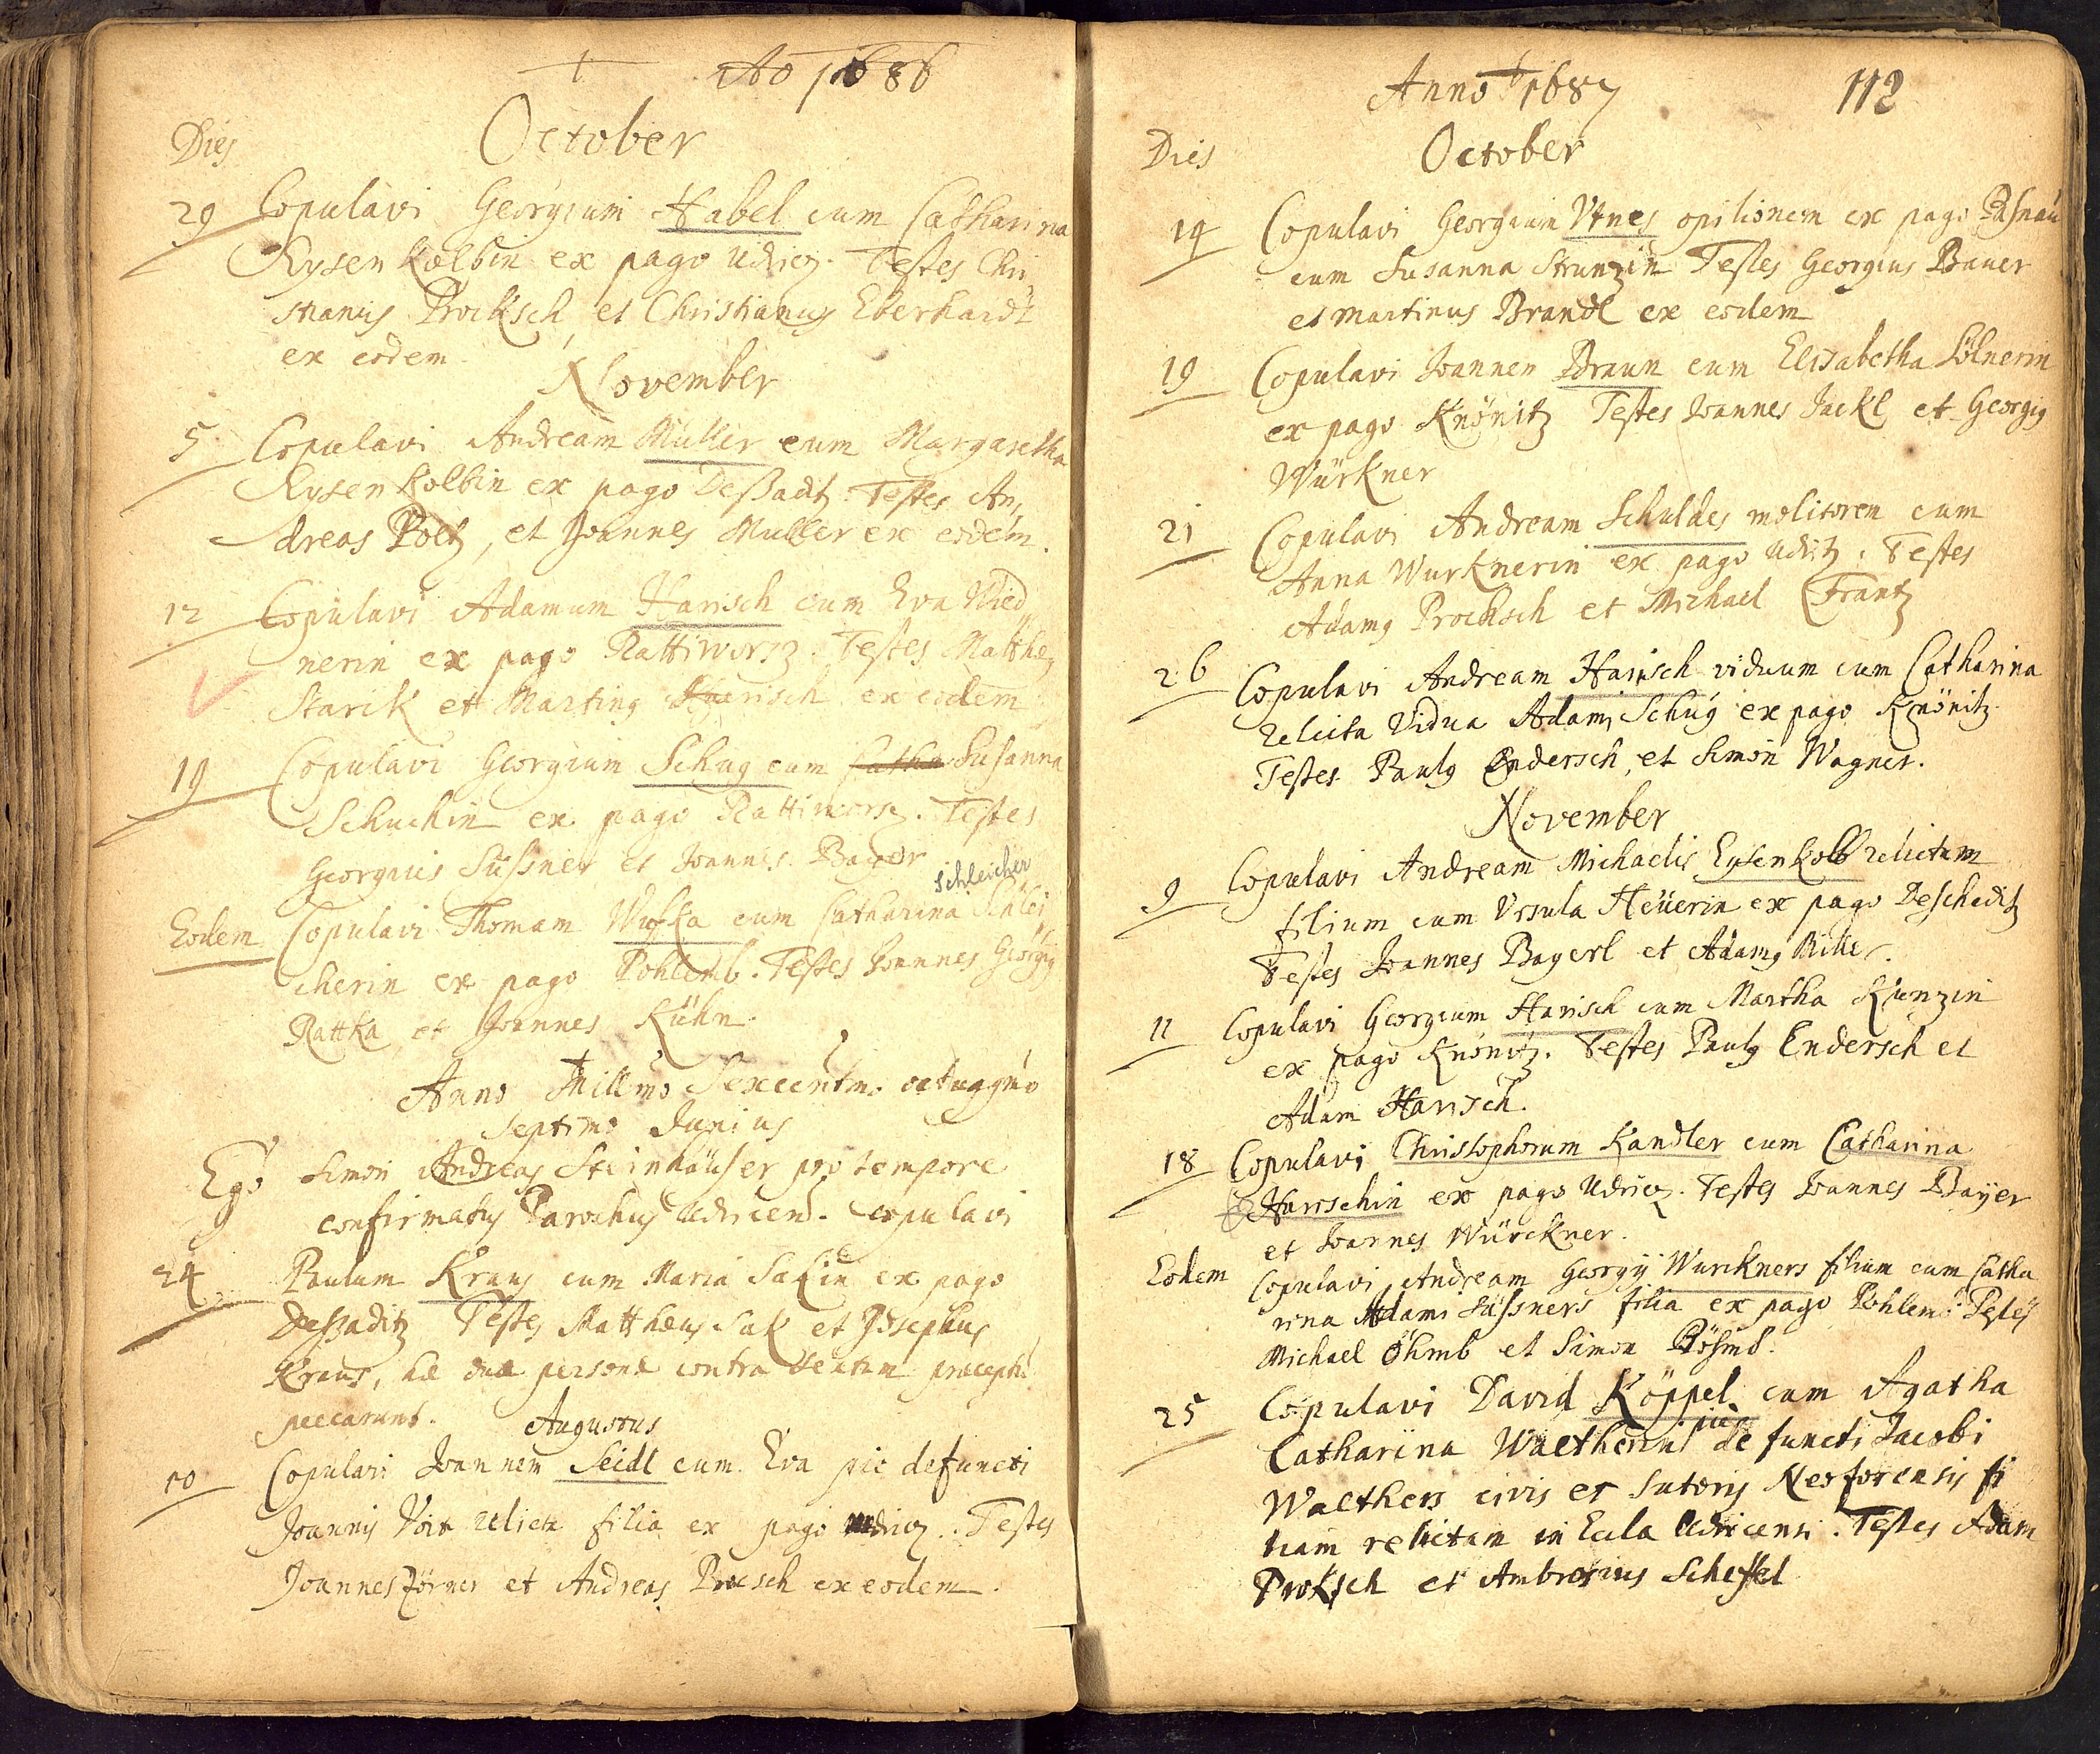 Ao 1686
Dies October
29 Copulavi Georgium Habel cum Catharina
Rysenkolbin ex pago Udricz. Testes Chri
stianus Procksch et Christianus Eberhardt
ex eodem
November
5 Copulavi Andream Müller cum Margaretha
Rysenkolbin ex pago Deßadtz. Testes An
dreas Poltz, et Joannes Muller ex eodem.
12 Copulavi Adamum Harisch cum Eva Wied
nerin ex pago Rattiworsz. Testes Matthe9
Starik et Martin9 Harisch ex eodem
19 Copulavi Georgium Schug cum Catha Susanna
Schuchin ex pago Rattiworsz. Testes
Georgius Süßner et Joannes Bayer
Schleicher
Eodem Copulavi Thomam Wukka cum Catharina Schlei
cherin ex pago Pohlemb. Testes Joannes Georg9
Rattka, et Joannes Kühn.
Anno Millmo Sexcentmo octuagmo
septimo Junius
Ego Simon Andreas Steinhäuser pro tempore
confirmatus Parochus Udricens. copulavi
24 Paulum Kraus cum Maria Sakin ex pago
Deßaditz Testes Matthæus Sak et Josephus
Kraus, hæ duæ personæ contra sextum præceptu
peccarunt.
Augustus
10 Copulavi Joannem Seidl cum Eva pie defuncti
Joannis Voit relicta filia ex pago Udricz. Testes
Joannes Zörner et Andreas Procsch ex eodem.
Anno 1687 112
Dies October
14 Copulavi Georgium Vtnes opilionem ex pago Paßnau
cum Susanna Strunzin Testes Georgius Bauer
et Martinus Brandl ex eodem
19 Copulavi Joannen Braun cum Elisabetha Sölnerin
ex pago Knönitz Testes Joannes Jackl et Georgi9
Würkner
21 Copulavi Andream Schuldes molitorem cum
Anna Wurknerin ex pago Udritz. Testes
Adam9 Procksch et Michael Frantz
26 Copulavi Andream Harisch viduum cum Catharina
relicta Vidua Adami Schug ex pago Knönitz.
Testes Paul9 Endersch, et Simon Wagner.
November
9 Copulavi Andream Michaelis Eysenkolb relictum
filium cum Vrsula Heüerin ex pago Deschaditz
Testes Joannes Bayerl et Adam9 Miller.
11 Copulavi Georgium Harisch cum Martha Kunzin
ex pago Knönitz. Testes Paul9 Endersch et
Adam Harisch.
18 Copulavi Christophorum Kandler cum Catharina
Harischin ex pago Udricz. Testes Joannes Bayer
et Joannes Würckner.
Eodem Copulavi Andream Georgÿ Wurkners filium cum Catha
rina Adami Süßners filia ex pago Pohlem: Testes
Michael Öhmb et Simon Böhmb.
25 Copulavi David Köppel cum Agatha
Catharina Waltherin pie defuncti Jacobi
Walthers civis et sutoris Neoforensis fi
liam relictam in Eccla Udricensi. Testes Adam
Proksch et Ambrosius Scheffel